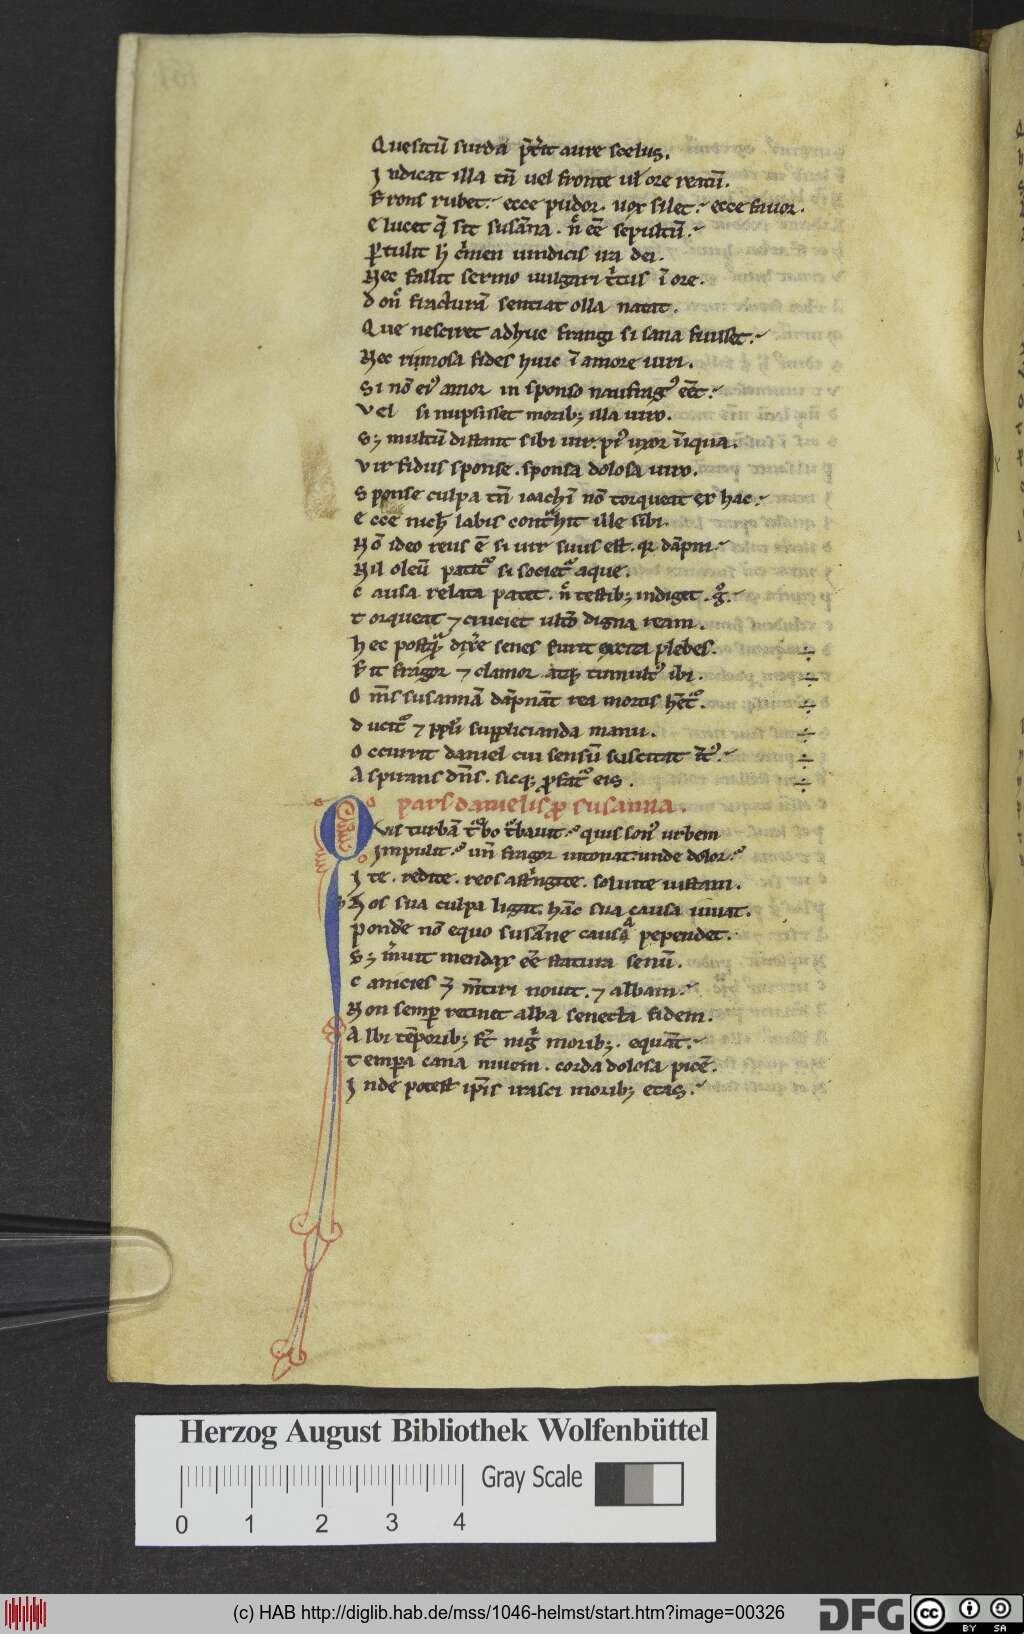 Quesitū surda p̄t̾it aure scelus.
Indicat illa tn̄ uel fronte ul̾ ore reatū.
Frons rubet. ecce pudor. uox silet. ecce fauor.
Elucet q̄ sit susāna. n̄ eē sepultū.
ꝑtulit h̾ c̾men uindicis ira dei.
Nec fallit sermo uulgari t̾tus ī ore.
don̾ fracturā sentiat olla natat.
Que nesciret adhuc frangi si sana fuisset.
Nec rimosa fides huic ī amore uiri.
Si nō ei᾿ amor in sponso naufrag᾿ eēt.
Vel si nupsisset moribꝫ illa uiro.
Sꝫ multū distant sibi uir. pi᾿ uxor iīqua.
Vir fidus sponse. sponsa dolosa uiro.
Sponse culpa tn̄ ioachī nō torqueat ex hac.
Ecce nich̾ labis cont̾hit ille sibi.
Nō ideo reus ē si uir suus est. qr dāpni.
Nil oleū patit᾿ si societ᾿ aque.
Causa relata patet. n̄ testibꝫ indiget. g̾.
Torqueat ⁊ cruciet ult̾o digna ream.
hec postq̄ᷓ dix̾e senes furit excita plebes.
Fit fragor ⁊ clamor atqꝫ tumult᾿ ibi.
O m̄s susannā dāpnāt rea mortis het᾿.
ducit᾿ ⁊ pp̾li supplicianda manu.
Occurrit daniel cui sensū suscitat
Aspirans dn̄s. sicqꝫ ꝓfat᾿ eis.
pars danielis ꝓ susanna.
Quis turbā t᾿bo t᾿bauit. quis son᾿ urbem
Impulit. un̄ fragor intonat. unde dolor.
Ite. redite. reos ast̾ngite. soluite iustam.
Hos sua culpa ligat. hāc sua causa iuuat.
Pond̾e nō equo susāne causa pependet.
Sꝫ m̾uit mendax eē statura senū.
Canicies m̄tiri nouit. ⁊ albam.
Non semꝑ retinet alba senecta fidem.
Albi tēporibꝫ st̾ nig̾ moribꝫ. equāt.
Tempora cana niuem. corda dolosa picē.
Inde potest ip̄is irasci moribꝫ etas.
Herzog August Bibliothek Wolfenbüttel
Gray Scale
0 1 2 3 4
(c) HAB http://diglib.hab.de/mss/1046-helmst/start.htm?image=00326
DFG
cc BY SA